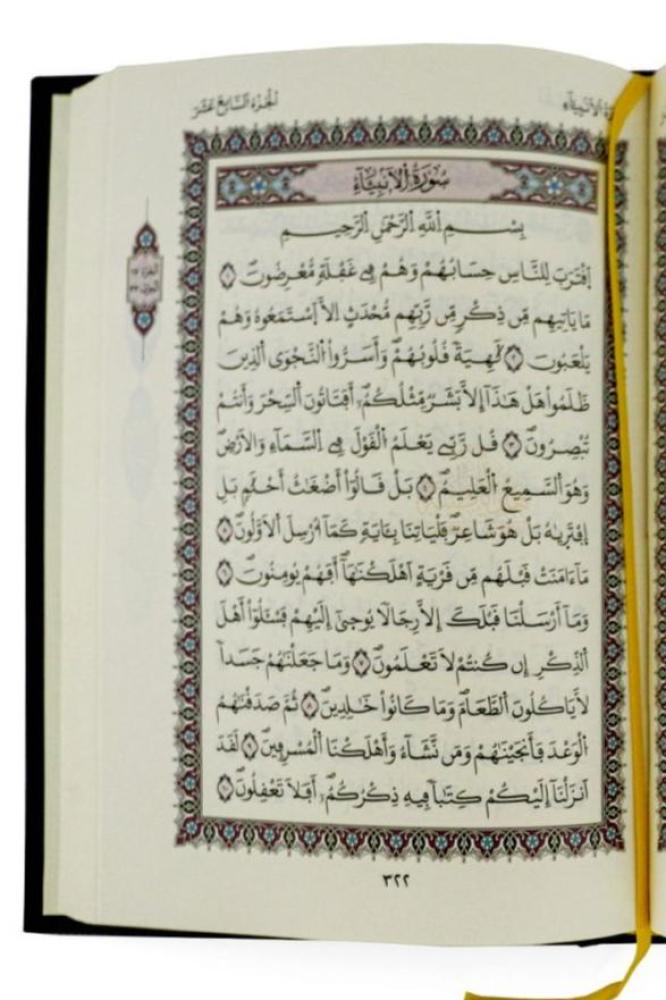 ةُ الأَنبِيَاءِ
الجُزْءُ السَّابِعَ عَشَرَ
سُورَةُ الأَنبِيَاءِ
بِسْمِ اللَّهِ الرَّحْمَٰنِ الرَّحِيمِ
اِقْتَرَبَ لِلنَّاسِ حِسَابُهُمْ وَهُمْ فِي غَفْلَةٖ مُّعْرِضُونَۖ ١
مَا يَاتِيهِم مِّن ذِكْرٖ مِّن رَّبِّهِم مُّحْدَثٍ اِلَّا اَسْتَمَعُوهُ وَهُمْ
يَلْعَبُونَ ٢ لَٰهِيَةٗ قُلُوبُهُمْۖ وَأَسَرُّواْ النَّجْوَى الذِينَ
ظَلَمُواْ هَلْ هَٰذَآ إِلَّا بَشَرٞ مِّثْلُكُمُۥٓۖ أَفَتَاتُونَ السِّحْرَ وَأَنتُمْ
تُبْصِرُونَۖ ٣ قُل رَّبِّي يَعْلَمُ الْقَوْلَ فِي السَّمَآءِ وَالَارْضِۖ
وَهُوَ السَّمِيعُ الْعَلِيمُۖ ٤ بَلْ قَالُوٓاْ أَضْغَٰثُ أَحْلَٰمِۢ بَلِ
اِفْتَرَىٰهُ بَلْ هُوَ شَاعِرٞۖ فَلْيَاتِنَا بِـَٔايَةٖ كَمَآ أُرْسِلَ الَاوَّلُونَۖ ٥
مَآ ءَامَنَتْ قَبْلَهُم مِّن قَرْيَةٍ اَهْلَكْنَٰهَآۖ أَفَهُمْ يُومِنُونَۖ ٦
وَمَآ أَرْسَلْنَا قَبْلَكَ إِلَّا رِجَالٗا يُوحَىٰٓ إِلَيْهِمْۖ فَسْـَٔلُوٓاْ أَهْلَ
الذِّكْرِ إِن كُنتُمْ لَا تَعْلَمُونَۖ ٧ وَمَا جَعَلْنَٰهُمْ جَسَداٗ
لَّا يَاكُلُونَ الطَّعَامَۖ وَمَا كَانُواْ خَٰلِدِينَۖ ٨ ثُمَّ صَدَقْنَٰهُمُ
الْوَعْدَ فَأَنجَيْنَٰهُمْ وَمَن نَّشَآءُ وَأَهْلَكْنَا الْمُسْرِفِينَۖ ٩ لَقَدَ
اَنزَلْنَآ إِلَيْكُمْ كِتَٰباٗ فِيهِ ذِكْرُكُمُۥٓۖ أَفَلَا تَعْقِلُونَۖ ١٠
٣٢٢